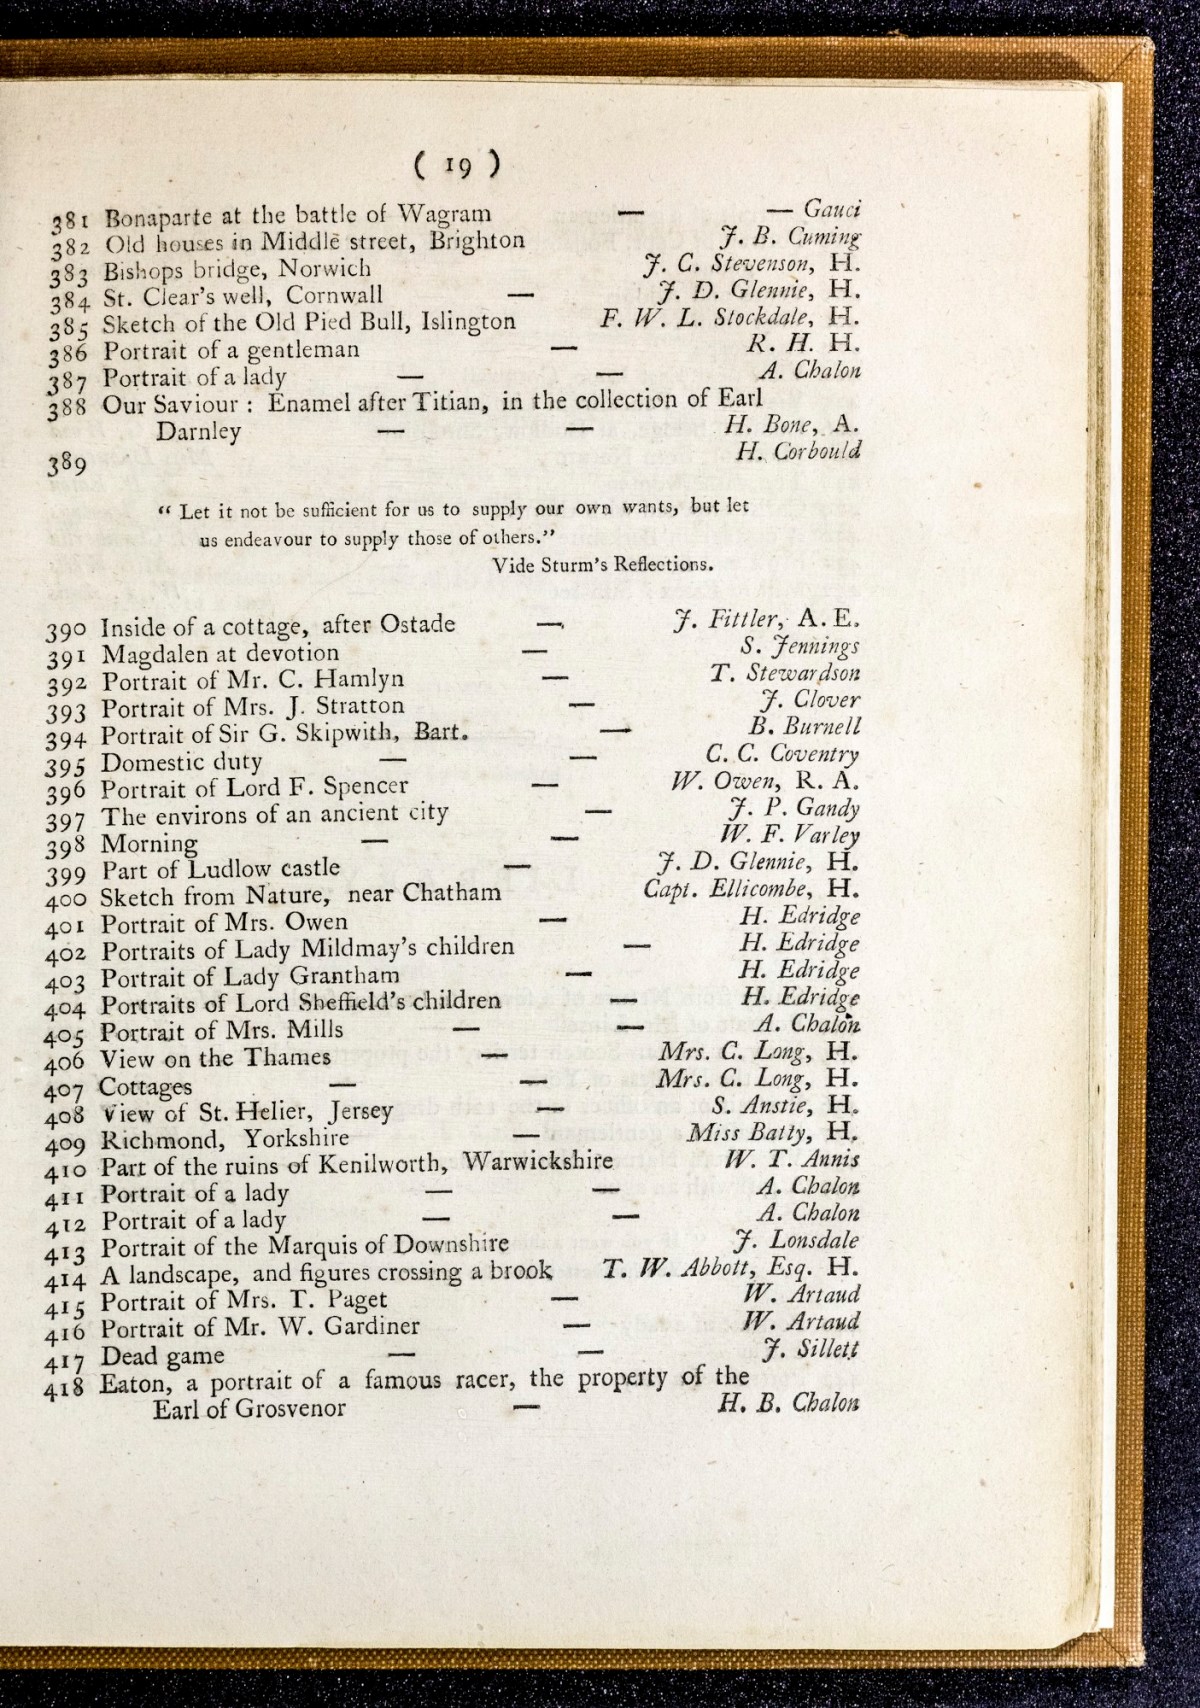 ( 19 )
381 Bonaparte at the battle of Wagram — — Gauci
382 Old houses in Middle street, Brighton J. B. Cuming
383 Bishops bridge, Norwich J. C. Stevenson, H.
384 St. Clear's well, Cornwall — J. D. Glennie, H.
385 Sketch of the Old Pied Bull, Islington F. W. L. Stockdale, H.
386 Portrait of a gentleman — R. H. H.
387 Portrait of a lady — — A. Chalon
388 Our Saviour : Enamel after Titian, in the collection of Earl
Darnley — — H. Bone, A.
389 H. Corbould
“ Let it not be sufficient for us to supply our own wants, but let
us endeavour to supply those of others.”
Vide Sturm's Reflections.
390 Inside of a cottage, after Ostade — J. Fittler, A. E.
391 Magdalen at devotion — S. Jennings
392 Portrait of Mr. C. Hamlyn — T. Stewardson
393 Portrait of Mrs. J. Stratton — J. Clover
394 Portrait of Sir G. Skipwith, Bart. — B. Burnell
395 Domestic duty — — C. C. Coventry
396 Portrait of Lord F. Spencer — W. Owen, R. A.
397 The environs of an ancient city — J. P. Gandy
398 Morning — — W. F. Varley
399 Part of Ludlow castle — J. D. Glennie, H.
400 Sketch from Nature, near Chatham Capt. Ellicombe, H.
401 Portrait of Mrs. Owen — H. Edridge
402 Portraits of Lady Mildmay's children — H. Edridge
403 Portrait of Lady Grantham — H. Edridge
404 Portraits of Lord Sheffield's children — H. Edridge
405 Portrait of Mrs. Mills — — A. Chalon
406 View on the Thames — Mrs. C. Long, H.
407 Cottages — — Mrs. C. Long, H.
408 View of St. Helier, Jersey — S. Anstie, H.
409 Richmond, Yorkshire — Miss Batty, H.
410 Part of the ruins of Kenilworth, Warwickshire W. T. Annis
411 Portrait of a lady — — A. Chalon
412 Portrait of a lady — — A. Chalon
413 Portrait of the Marquis of Downshire J. Lonsdale
414 A landscape, and figures crossing a brook T. W. Abbott, Esq. H.
415 Portrait of Mrs. T. Paget — W. Artaud
416 Portrait of Mr. W. Gardiner — W. Artaud
417 Dead game — — J. Sillett
418 Eaton, a portrait of a famous racer, the property of the
Earl of Grosvenor — H. B. Chalon